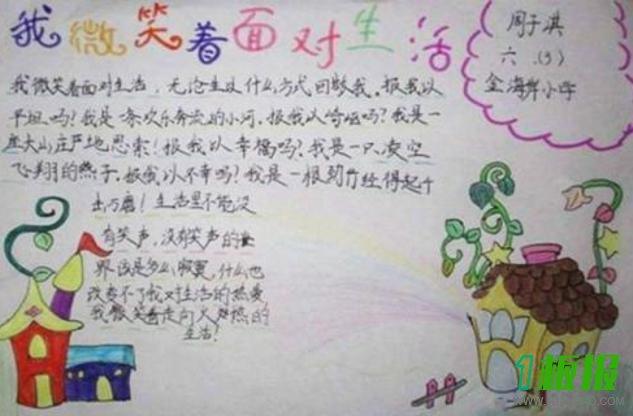 我微笑着面对生活
周子淇
六.(3)
金海岸小学
我微笑着面对生活，无论生活以什么方式回敬我。报我以
平坦吗？我是一条欢乐奔流的小河。报我以崎岖吗？我是一
座大山庄严地思索！报我以幸福吗？我是一只凌空
飞翔的燕子。报我以不幸吗？我是一根劲竹经得起千
击万磨！生活里不能没
有笑声，没有笑声的世
界该是多么寂寞，什么也
改变不了我对生活的热爱
我微笑着走向火热的
生活！
1板报